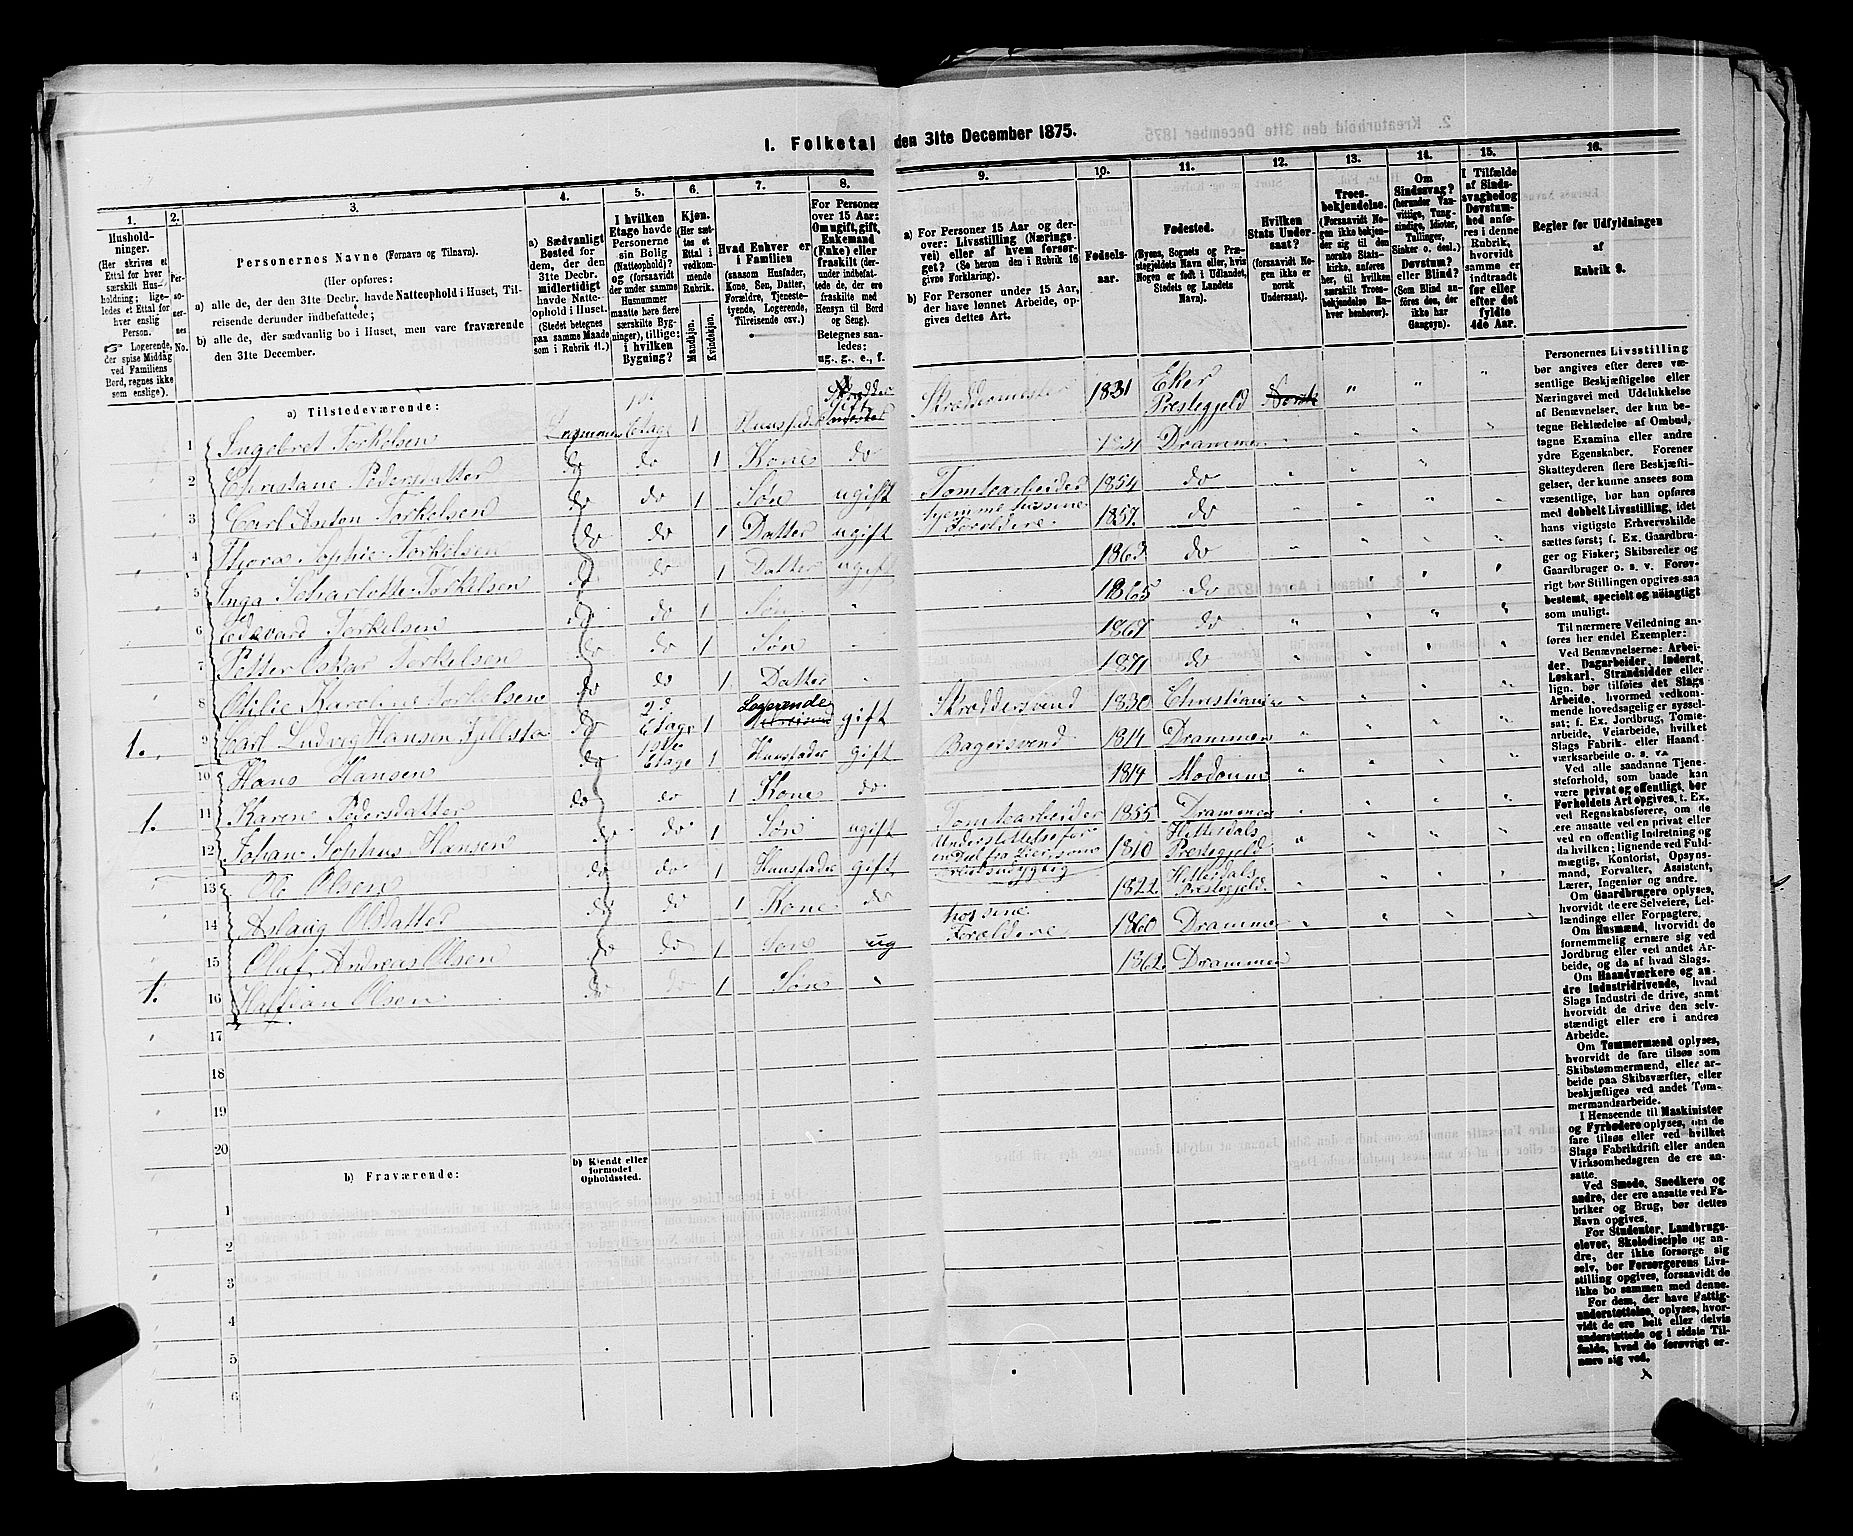 1. Folketal den 31te December 1875.
1.
Hushold-
ninger.
(Her skrives et
Ettal for hver
særskilt Hus-
holdning; lige-
ledes et Ettal for
hver enslig
Person.
☞ Logerende,
der spise Middag
ved Familiens
Bord, regnes ikke
som enslige).
2.
Per-
so-
ner-
nes
No.
3.
Personernes Navne (Fornavn og Tilnavn).
(Her opføres:
a) alle de, der den 31te Decbr. havde Natteophold i Huset, Til-
reisende derunder indbefattede;
b) alle de, der sædvanlig bo i Huset, men vare fraværende
den 31te December.
4.
a) Sædvanligt
Bosted for
dem, der den
31te Decbr.
midlertidigt
havde Natte-
ophold i Huset.
(Stedet betegnes
paa samme Maade
som i Rubrik 11.)
5.
I hvilken
Etage havde
Personerne
sin Bolig
(Natteophold)?
og (forsaavidt
der under samme
Husnummer
maatte høre flere
særskilte Byg-
ninger), tillige:
i hvilken
Bygning?
6.
Kjøn.
(Her sæt-
tes et
Ettal i
vedkom-
mende
Rubrik.
Mandkjøn.
Kvindekjøn.
7.
Hvad Enhver er
i Familien
(saasom Husfader,
Kone, Søn, Datter,
Forældre, Tjeneste-
tyende, Logerende,
Tilreisende osv.)
8.
For Personer
over 15 Aar:
Om ugift, gift,
Enkemand
(Enke) eller
fraskilt (der-
under indbefat-
tede de, der ere
fraskilte med
Hensyn til Bord
og Seng).
Betegnes saa-
ledes:
ug., g., e., f.
9.
a) For Personer 15 Aar og der-
over: Livsstilling (Nærings-
vei) eller af hvem forsør-
get? (Se herom den i Rubrik 16
givne Forklaring).
b) For Personer under 15 Aar,
der have lønnet Arbeide, op-
gives dettes Art.
10.
Fødsels-
aar.
11.
Fødested.
(Byens, Sognets og Præ-
stegjeldets Navn eller, hvis
Nogen er født i Udlandet,
Stedets og Landets
Navn).
12.
Hvilken
Stats Under-
saat?
(forsaavidt No-
gen ikke er
norsk
Undersaat).
13.
Troes-
bekjendelse.
(Forsaavidt No-
gen ikke bekjen-
der sig til den
norske Stats-
kirke, anføres
her, til hvilken
særskilt Troes-
bekjendelse En-
hver henhører).
14.
Om
Sindssvag?
(herunder Van-
vittige, Tung-
sindige, Idioter,
Tullinger,
Sinker o. desl.)
Døvstum?
eller Blind? (Som
Blind an-
føres den, der
ikke har
Gangsyn).
15.
I Tilfælde
af Sinds-
svaghed og
Døvstum-
hed anfø-
res i denne
Rubrik,
hvorvidt
samme er
indtraadt
før eller
efter det
fyldte
4de Aar.
16.
Regler for Udfyldningen
af
Rubrik 9.
a) Tilstedeværende:
1 Ingebret Torkelsen Drammen 1ste Etage 1 Huusfader gift Skræddermester 1831 Eker Prestegjeld Norsk
2 Christane Pedersdatter do do 1 Kone do Drammen
3 Carl Anton Torkelsen do do 1 Søn ugift Tomtearbeider 1854 do
4 Thora Sophie Torkelsen do do 1 Datter ugift hjemme hos sine Forældre 1857 do
5 Inga Charlotte Torkelsen do do 1 Datter ugift 1863 do
6 Edevard Torkelsen do do 1 Søn 1865 do
7 Petter Oskar Torkelsen do do 1 Søn 1867 do
8 Otilie Karoline Torkelsen do do 1 Datter 1871 do
1. 9 Carl Ludvig Hansen do 2d Etage 1 Logerende gift Skræddersvend 1830 Christiania
10 Hans Hansen do 1ste Etage 1 Huusfader gift Bagersvend 1814 Drammen
1. 11 Karen Pedersdatter do do 1 Kone do 1814 Modum
12 Johan Sophus Hansen do do 1 Søn ugift Tomtearbeider 1855 Drammen
13 Ole Olsen do do 1 Huusfader gift Understøttelse for en Del fra 1810 Hitterdals Prestegjeld
14 Aslaug Olsdatter do do 1 Kone do 1822 Hitterdals Prestegjeld
15 Oluf Andreas Olsen do do 1 Søn ug hos sine Forældre 1860 Drammen
1. 16 Olsen do do 1 Søn 1862 Drammen
17
18
19
20
b) Fraværende:
b) Kjendt eller
formodet
Opholdssted.
1
2
3
4
5
6
Personernes Livsstilling
bør angives efter deres væ-
sentlige Beskjæftigelse eller
Næringsvei med Udelukkelse
af Benævnelser, der kun be-
tegne Beklædelse af Ombud,
tagne Examina eller andre
ydre Egenskaber. Forener
Skatteyderen flere Beskjæfti-
gelser, der kunne ansees som
væsentlige, bør han opføres
med dobbelt Livsstilling, idet
hans vigtigste Erhvervskilde
sættes først; f. Ex. Gaardbru-
ger og Fisker; Skibsreder og
Gaardbruger o. s. v. Forøv-
rigt bør Stillingen opgives saa
bestemt, specielt og nøiagtigt
som muligt.
Til nærmere Veiledning an-
føres her endel Exempler:
Ved Benævnelserne: Arbei-
der, Dagarbeider, Inderst,
Løskarl, Strandsidder eller
lign. bør tilføies det Slags
Arbeide, hvormed vedkom-
mende hovedsagelig er syssel-
sat; f. Ex. Jordbrug, Tomte-
arbeide, Veiarbeide, hvilket
Slags Fabrik- eller Haand-
værksarbeide o. s. v.
Ved alle saadanne Tjene-
steforhold, som baade kan
være privat og offentligt, bør
Forholdets Art opgives, t. Ex.
ved Regnskabsførere, om de
ere ansatte ved en privat eller
ved en offentlig Indretning og
da hvilken; lignende ved Fuld-
mægtig, Kontorist, Opsyns-
mand, Forvalter, Assistent,
Lærer, Ingeniør og andre.
Om Gaardbrugere oplyses,
hvorvidt de ere Selveiere, Lei-
lændinge eller Forpagtere.
Om Husmænd, hvorvidt de
fornemmelig ernære sig ved
Jordbrug eller ved andet Ar-
beide, og da af hvad Slags.
Om Haandværkere og an-
dre Industridrivende, hvad
Slags Industri de drive, samt
hvorvidt de drive den selv-
stændigt eller ere i andres
Arbeide.
Om Tømmermænd oplyses,
hvorvidt de fare tilsøs som
Skibstømmermænd, eller ar-
beide paa Skibsværfter, eller
beskjæftiges ved andet Tøm-
mermandsarbeide.
I Henseende til Maskinister
og Fyrbødere oplyses, om de
fare tilsøs eller ved hvilket
Slags Fabrikdrift eller anden
Virksomhedsgren de ere an-
satte.
Ved Smede, Snedkere og
andre, der ere ansatte ved Fa-
briker og Brug, bør dettes
Navn opgives.
For Studenter, Landbrugs-
elever, Skoledisciple og an-
dre, der ikke forsørge sig
selv, bør Forsørgerens Livs-
stilling opgives, forsaavidt de
ikke bo sammen med denne.
For dem, der have Fattig-
understøttelse, oplyses, hvor-
vidt de ere helt eller delvis
understøttede og i sidste Til-
fælde, hvad de forøvrigt er-
nære sig ved.